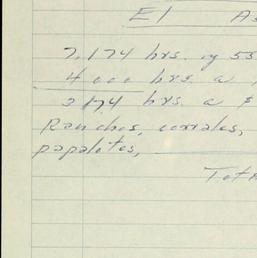 El As
7,174 hrs. y 55
4000 hrs. a
3174 hrs. a $
Ranchos, corrales,
papalotes,
Tot